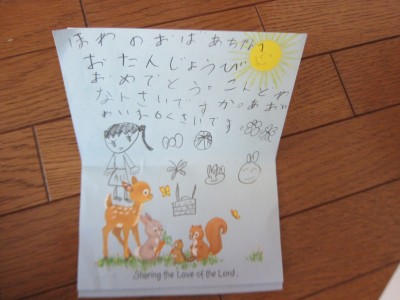 ほわのおばあちゃん
おたんじょうび
おめでとう。こんどわ
なんさいですか。
ろくさいです。
Sharing the Love of the Lord.